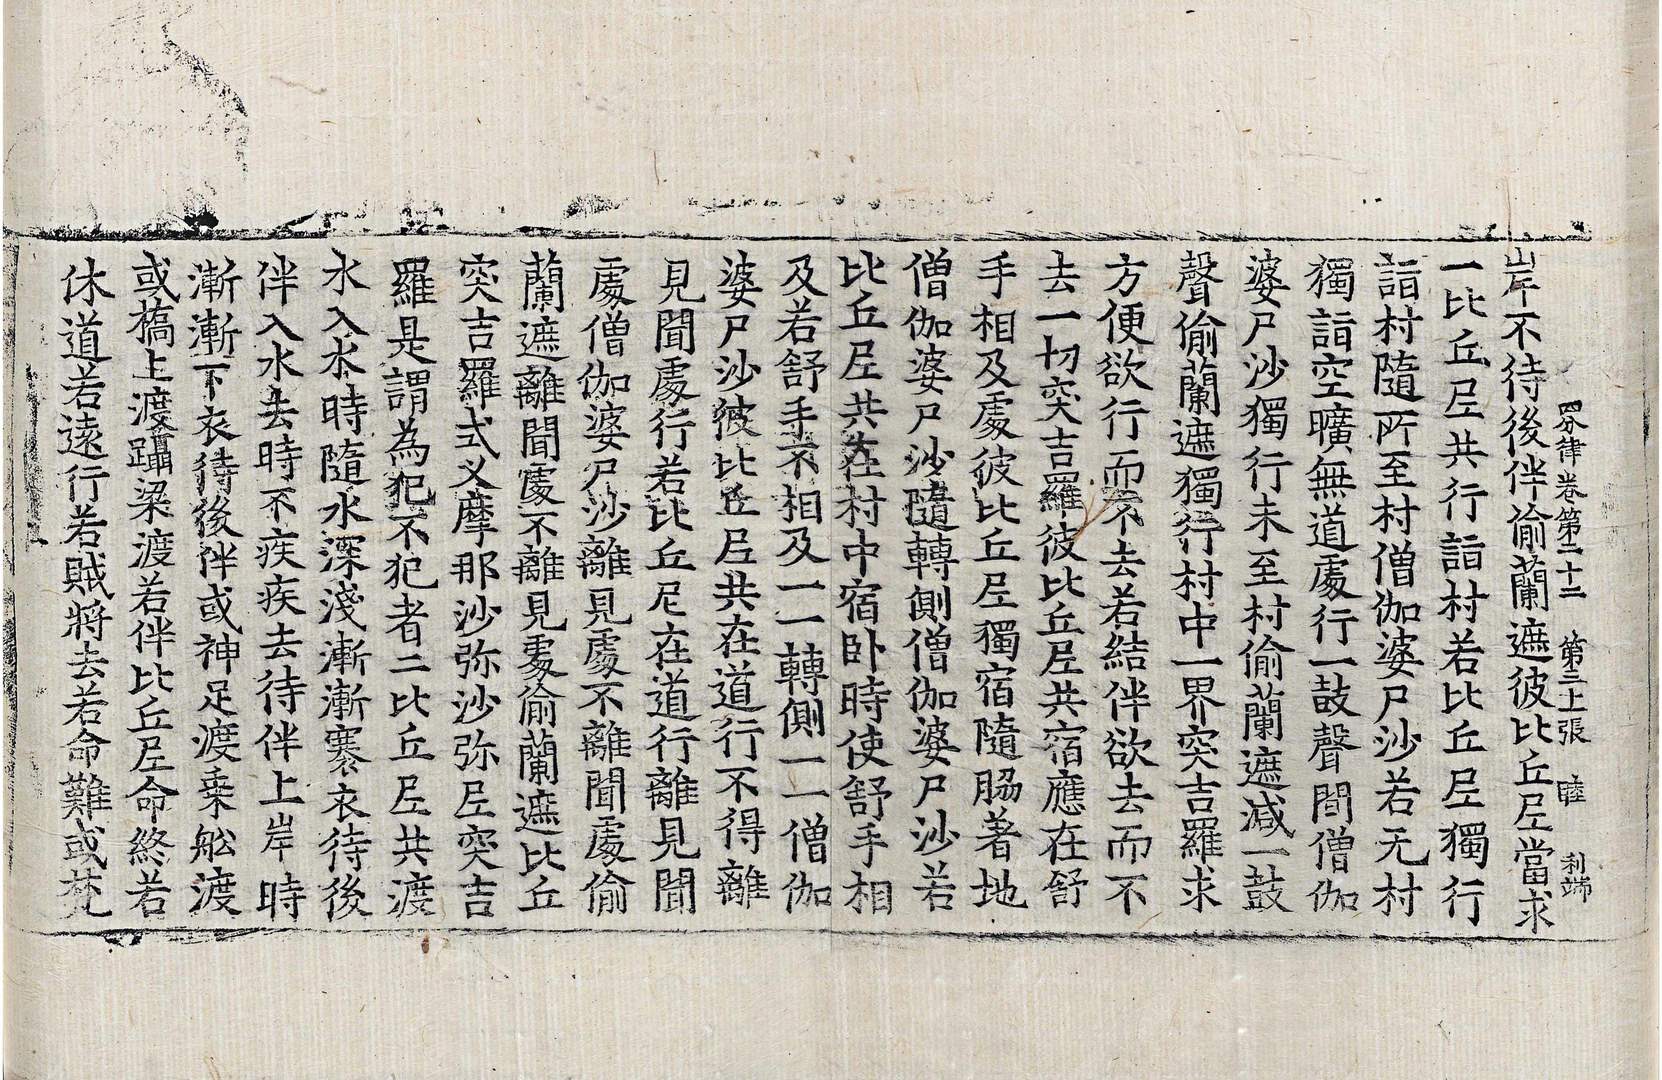 四分律卷第二十二　第三十張　睦　利端
岸不待後伴偷蘭遮彼比丘尼當求
一比丘尼共行詣村若比丘尼獨行
詣村隨所至村僧伽婆尸沙若无村
獨詣空曠無道處行一鼓聲間僧伽
婆尸沙獨行未至村偷蘭遮減一鼓
聲偷蘭遮獨行村中一界突吉羅求
方便欲行而不去若結伴欲去而不
去一切突吉羅彼比丘尼共宿應在舒
手相及處彼比丘尼獨宿隨脇著地
僧伽婆尸沙隨轉側僧伽婆尸沙若
比丘尼共在村中宿卧時使舒手相
及若舒手不相及一一轉側一一僧伽
婆尸沙彼比丘尼共在道行不得離
見聞處行若比丘尼在道行離見聞
處僧伽婆尸沙離見處不離聞處偷
蘭遮離聞處不離見處偷蘭遮比丘
突吉羅式叉摩那沙弥沙弥尼突吉
羅是謂為犯不犯者二比丘尼共渡
水入水時隨水深淺漸漸褰衣待後
伴入水去時不疾疾去待伴上岸時
漸漸下衣待後伴或神足渡乗舩渡
或橋上渡躡梁渡若伴比丘尼命終若
休道若遠行若賊將去若命難或梵